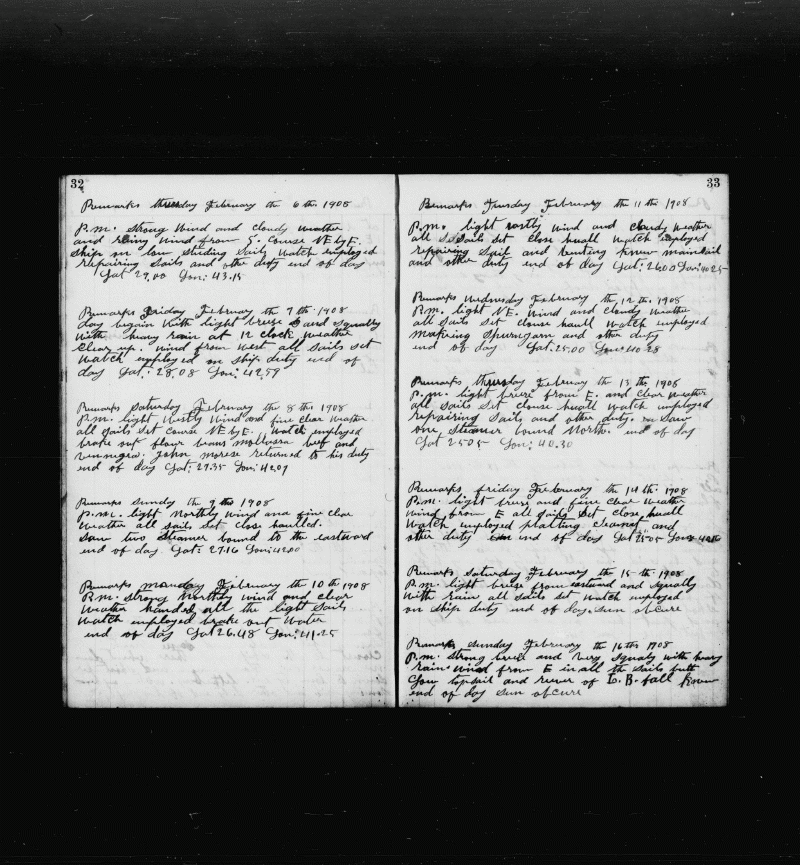 32
Remarks thursday February the 6 th 1908
P.m. strong wind and cloudy weather
and rainy wind from S. Course NE by E.
Ship in low steering sails watch employed
repairing sails and other duty end of day
Lat 29.00 Lon: 43.15
Remarks Friday February the 7 th 1908
day begain with light breise and squally
with heavy rain at 12 clock weather
clear up. wind from west all sails set
watch employed on ship duty end of
day Lat: 28.08 Lon: 42.59
Remarks Saturday February the 8 th 1908
P.m. light Westly wind and fine clear weather
all sails set Course NE by E. watch employed
brake out flour beans mollassa beef and
vennegra. John morese returned to his duty
end of day Lat: 27.35 Lon: 42.07
Remarks Sunday the 9 th 1908
P.m. light Northly wind and fine clear
weather all sails set close haulled.
saw two steamer bound to the eastward
end of day Lat: 27.16 Lon: 42.00
Remarks monday February the 10 th 1908
P.m. strong Northly wind and clear
weather handed all the light sails
watch employed brake out water
end of day Lat 26.48 Lon: 41.25
33
Remarks Tuesday February the 11 th 1908
P.m. light eastly wind and cloudy weather
all sails set close huall watch employed
repairing sail and benting know mainsail
and other duty end of day Lat: 26.08 Lon: 40.25
Remarks Wednesday February the 12 th 1908
P.m. light NE. wind and cloudy weather
all sails set clouse haull watch employed
making spunyarn and other duty
end of day Lat: 25.00 Lon: 40.28
Remarks thursday February the 13 th 1908
P.m. light breise from E. and clear weather
all sails set clouse huall watch employed
repairing sails and other duty. saw
one steamer bound North. end of day
Lat 25.05 Lon: 40.30
Remarks friday February the 14 th 1908
P.m. light breise and fine clear weather
wind from E all sails set close huall
watch employed platting cleanet and
other duty end of day Lat 25.05 Lon:
Remarks Saturday February the 15 th 1908
P.m. light breise from eastward and squally
with rain all sails set watch employed
on ship duty end of day sun obcure
Remarks Sunday February the 16 th 1908
P.m. strong breise and very squaly with heavy
rain wind from E in all the sails
topsail and of L. B. fall know
end of day sun obcure